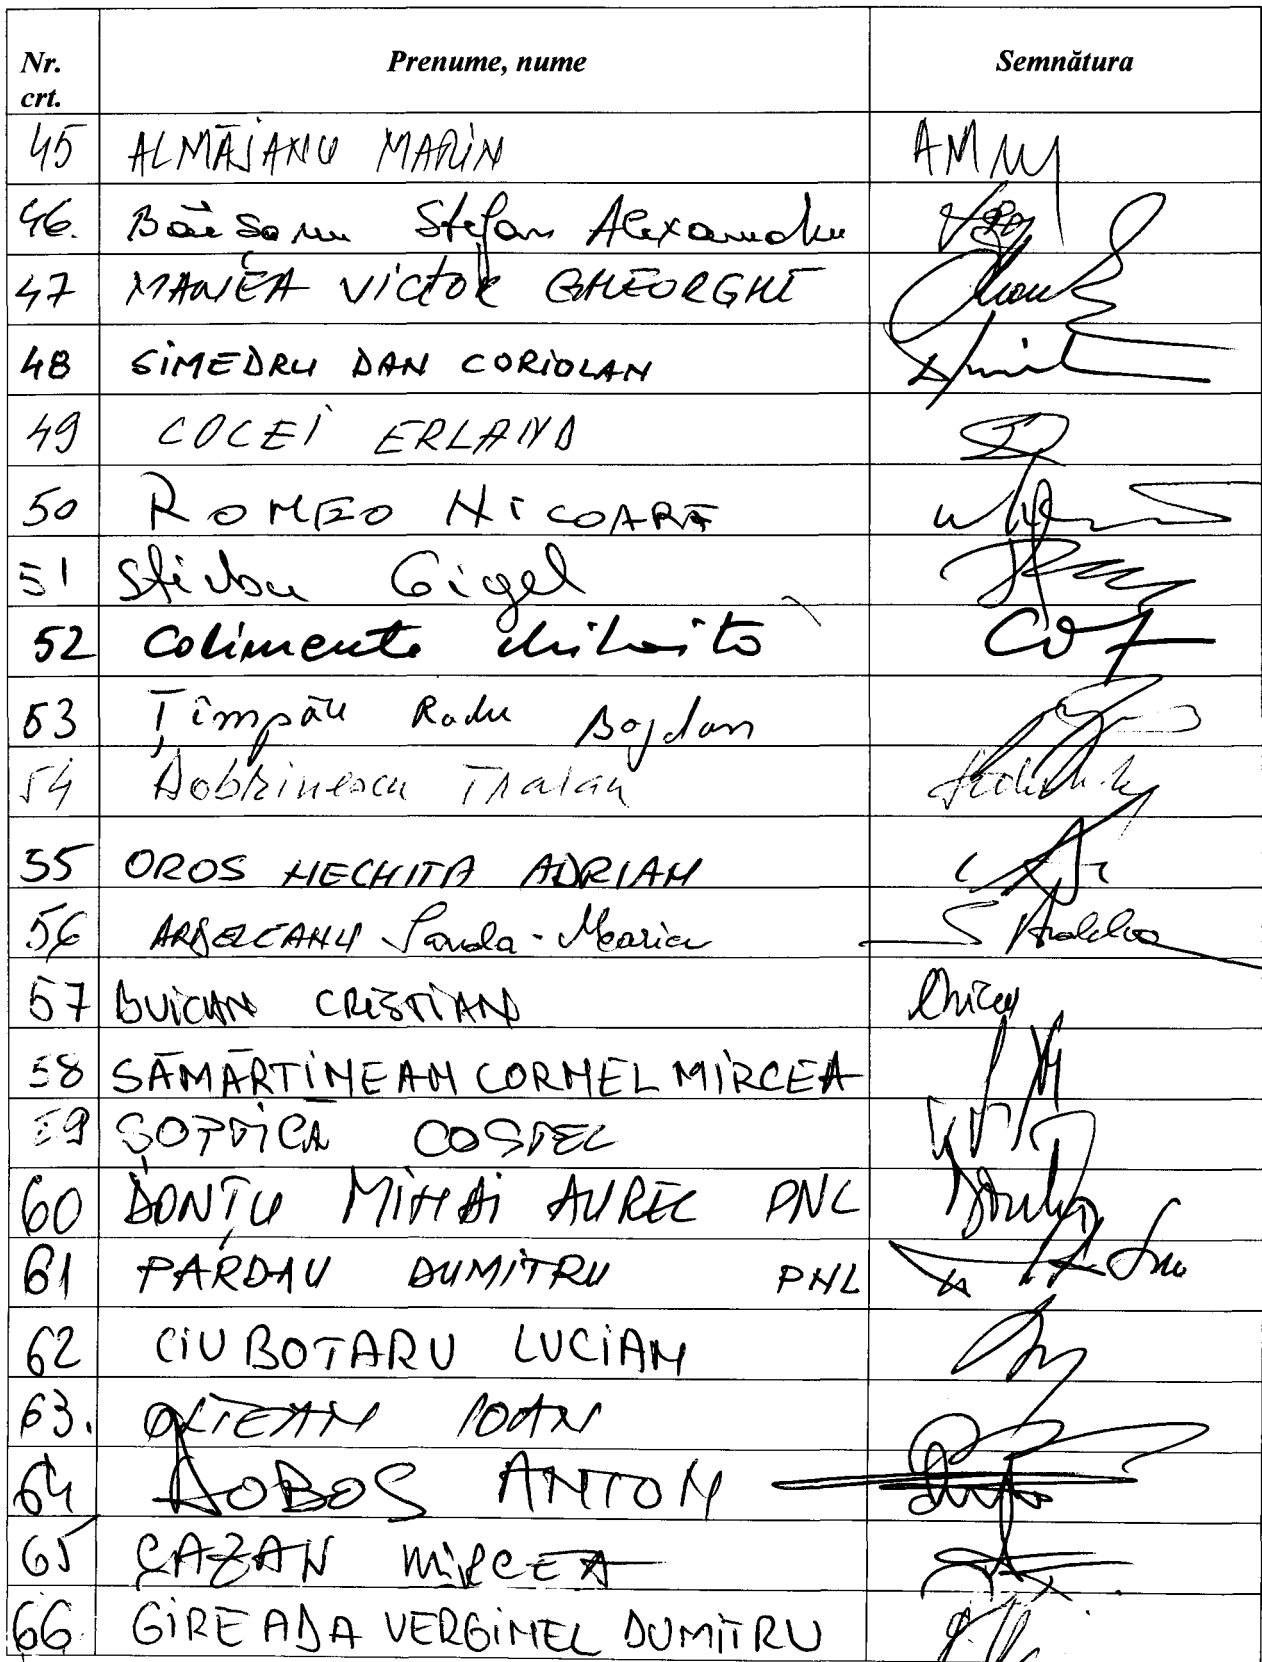 Nr. crt. Prenume, nume Semnătura
45 ALMĂJANU MARIN
46. Băișanu Ștefan Alexandru
47 MANEA VICTOR GHEORGHE
48 SIMEDRU DAN CORIOLAN
49 COCEI ERLAND
50 ROMEO NICOARĂ
51 Știrbu Gigel
52 Calimente Mihăiță
53 Țîmpău Radu Bogdan
54 Dobrinescu Traian
55 OROS NECHITA ADRIAN
56 ARDELEANU Sanda-Maria
57 BUICAN CRISTIAN
58 SĂMĂRTINEAN CORNEL MIRCEA
59 ȘOPTICĂ COSTEL
60 DONȚU MIHAI AUREL PNL
61 PARDĂU DUMITRU PNL
62 CIUBOTARU LUCIAN
63. OLTEAN IOAN
64 DOBOS ANTON
65 CAZAN MIRCEA
66 GIREADA VERGINEL DUMITRU